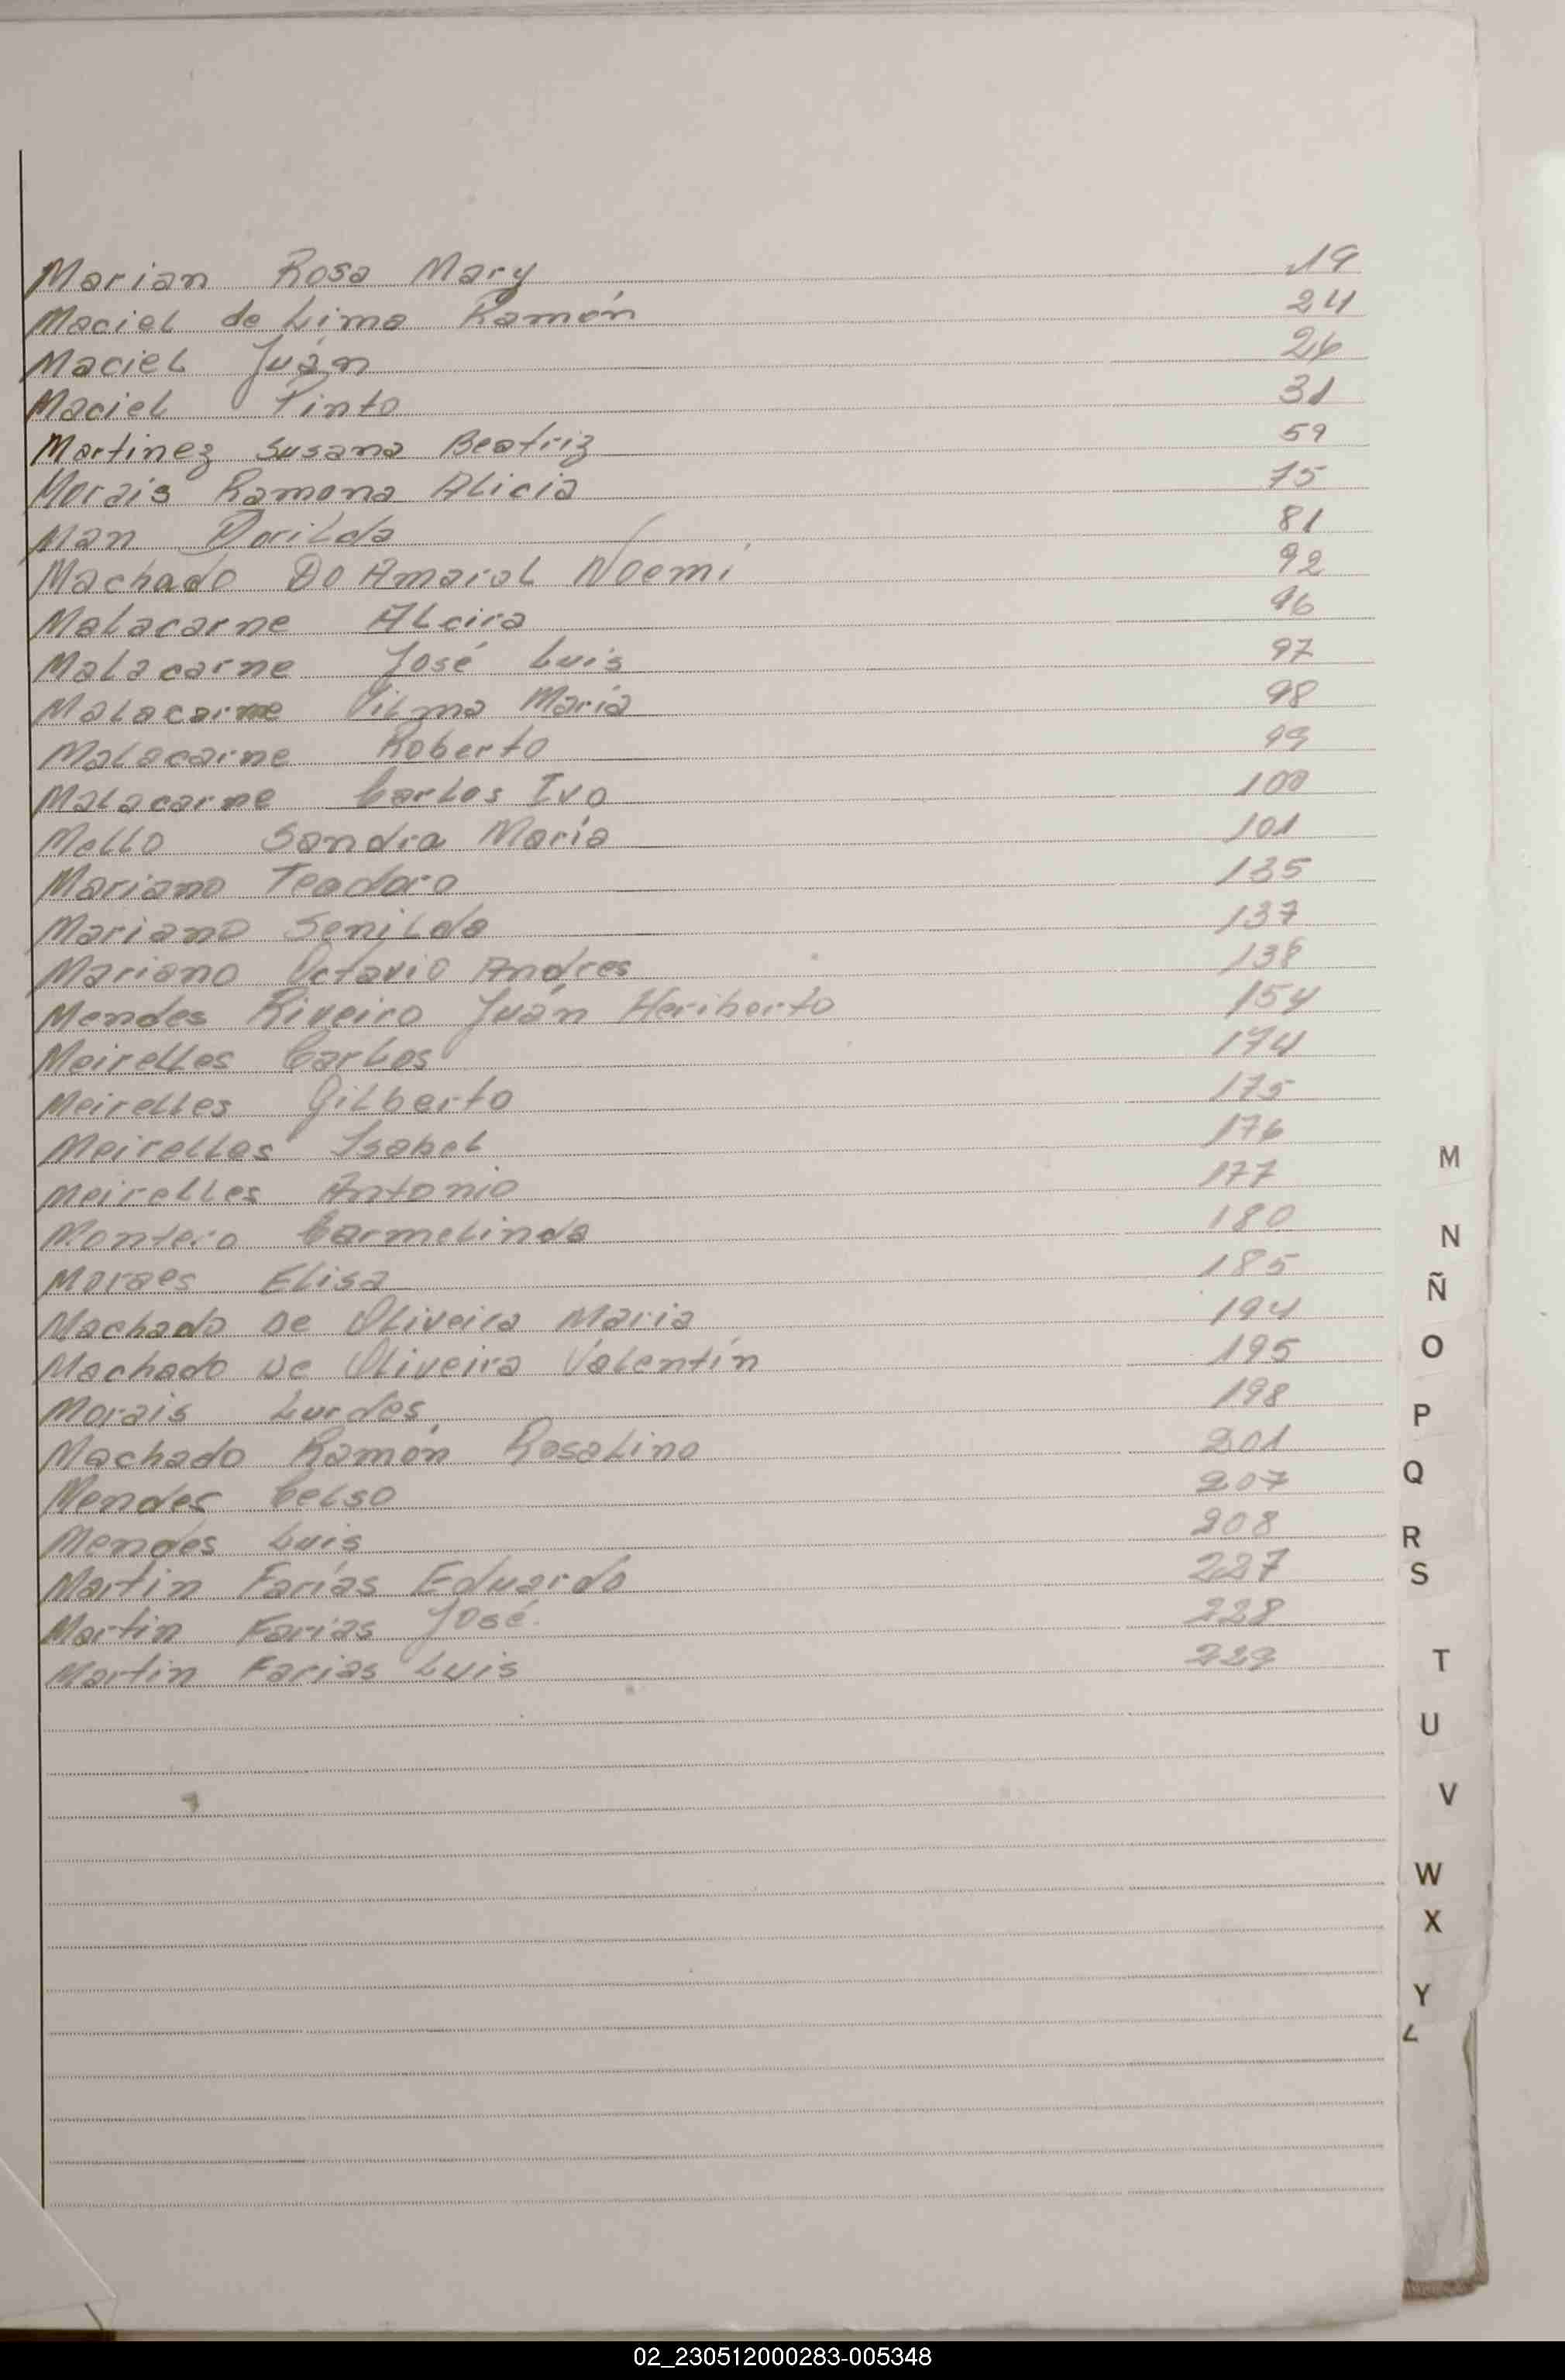 Marian Rosa Mary 19
Maciel de Lima Ramón 24
Maciel Juán 26
Maciel Pinto 31
Martinez Susana Beatriz 59
Morais Ramona Alicia 75
Man Dorilda 81
Machado Do Amaral Noemi 92
Malacarne Alcira 96
Malacarne José Luis 97
Malacarne Vilma María 98
Malacarne Roberto 99
Malacarne Carlos Ivo 100
Mello Sandra María 101
Mariano Teodoro 135
Mariano Senilda 137
Mariano Octavio Andres 138
Mendes Riveiro Juán Heriberto 154
Meirelles Carlos 174
Meirelles Gilberto 175
Meirelles Isabel 176
Meirelles Antonio 177
Montero Carmelinda 180
Moraes Elisa 185
Machado De Oliveira Maria 194
Machado De Oliveira Valentín 195
Morais Lurdes 198
Machado Ramón Rosalino 201
Mendes Celso 207
Mendes Luis 208
Martin Farías Eduardo 227
Martin Farias José 228
Martin Farias Luis 229
M
N
Ñ
O
P
Q
R
S
T
U
V
W
X
Y
02_230512000283-005348